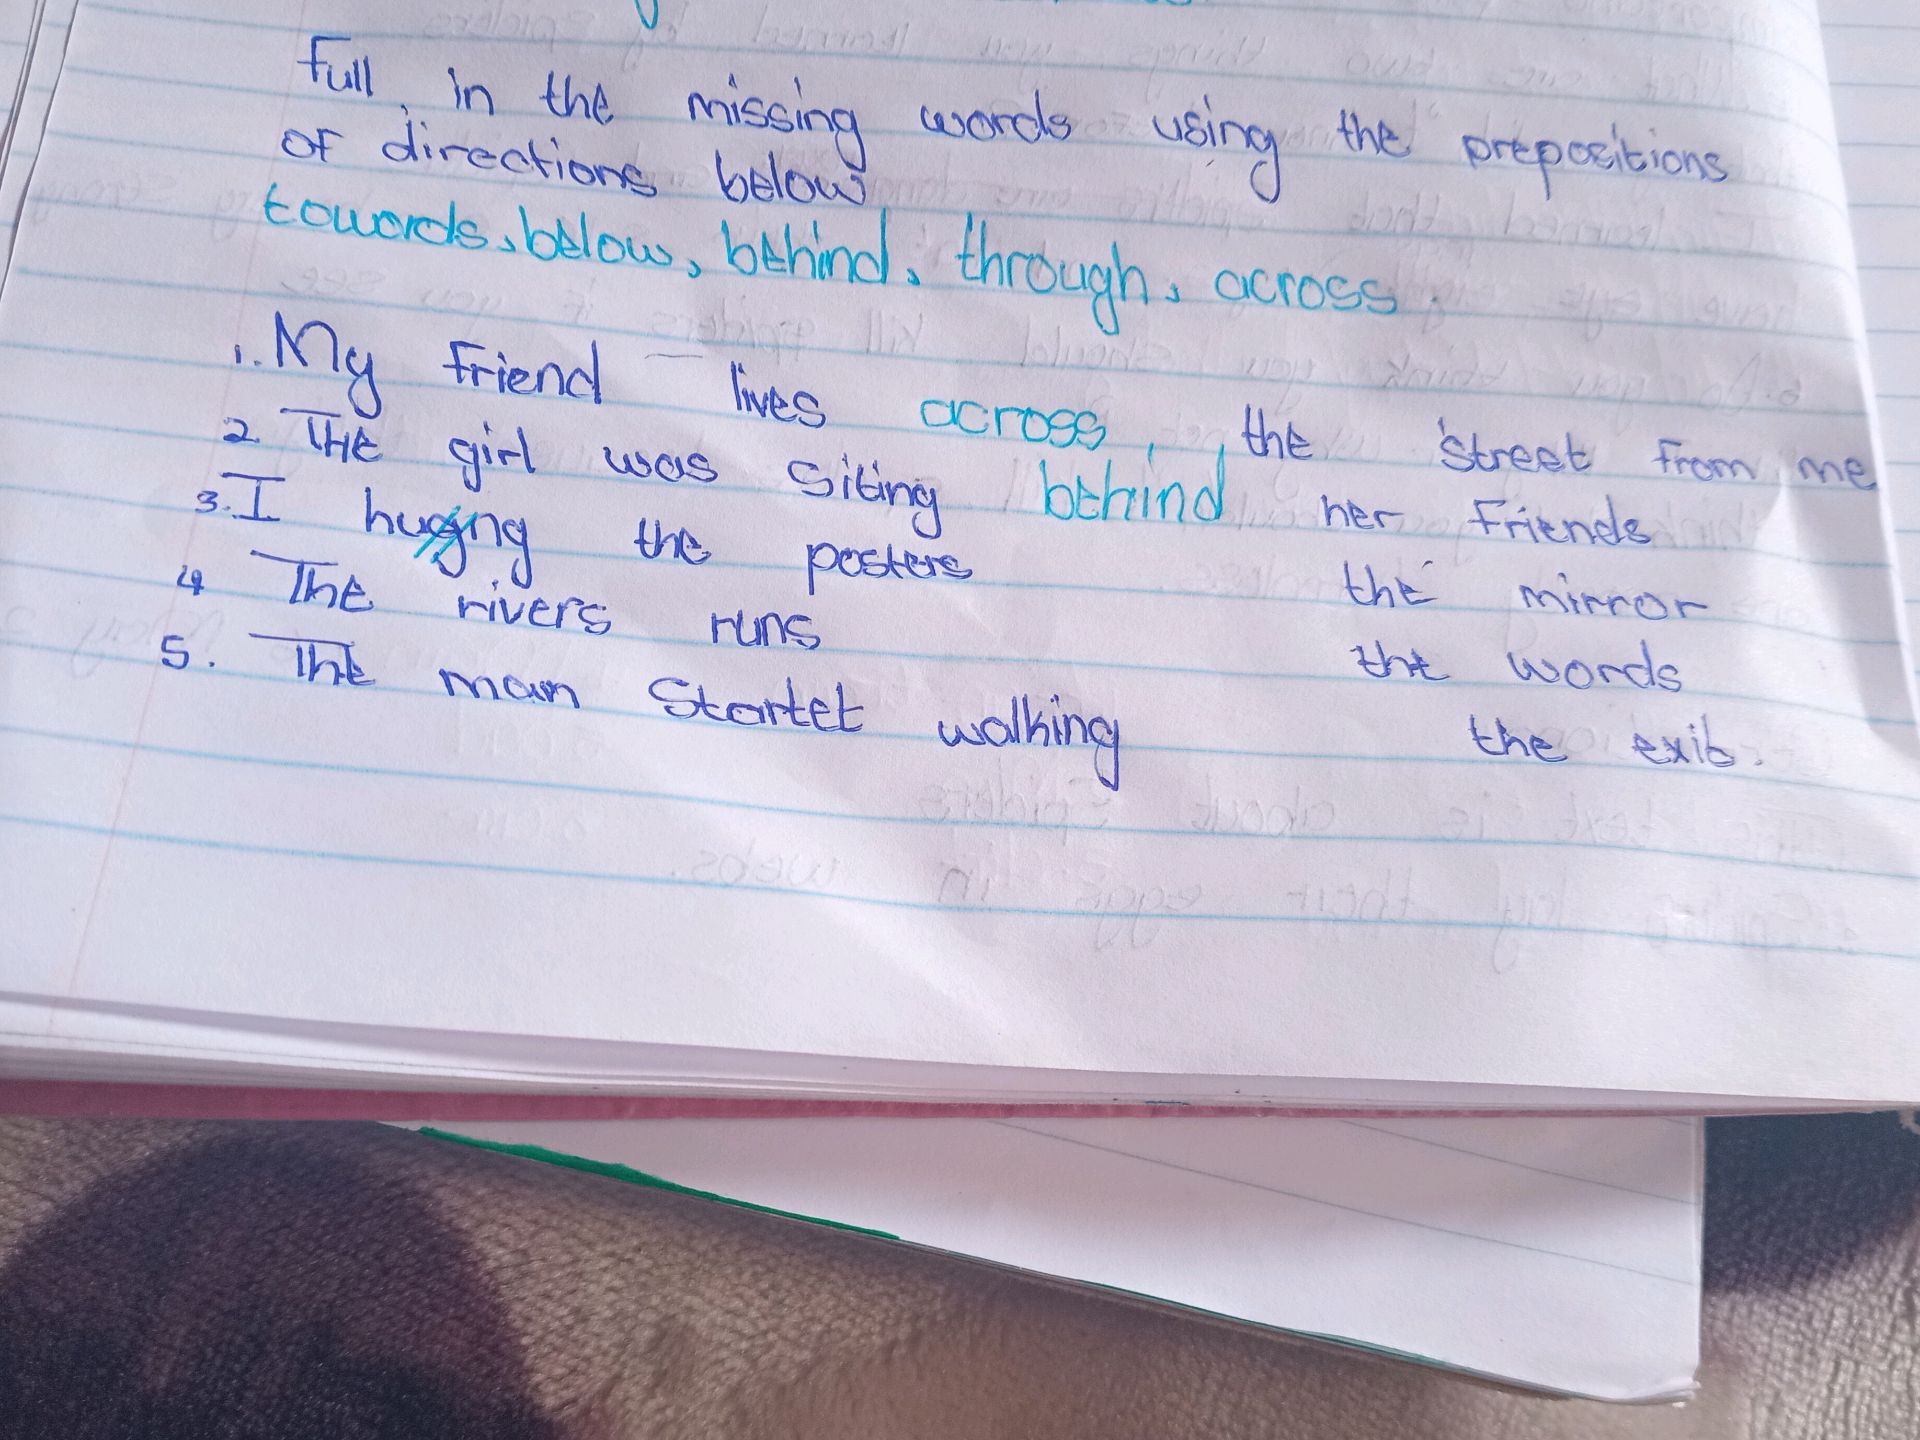 Full in the missing words using the prepositions
of directions below
towards, below, behind, through, across.
1. My friend lives across the street from me
2. The girl was siting behind her friends
3. I hugng the posters the mirror
4 The rivers runs the words
5. The man startet walking the exit.